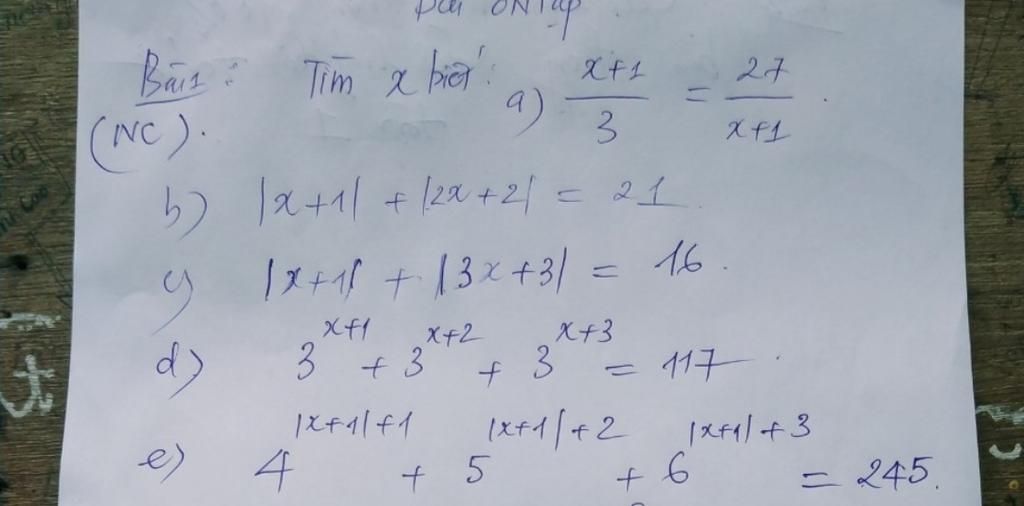 Bài ÔN Tập
Bài 1: Tìm x biết: a) \frac{x+1}{3} = \frac{27}{x+1}.
(NC).
b) |x+1| + |2x+2| = 21
c) |x+1| + |3x+3| = 16.
d) 3^{x+1} + 3^{x+2} + 3^{x+3} = 117.
e) 4^{|x+1|+1} + 5^{|x+1|+2} + 6^{|x+1|+3} = 245.